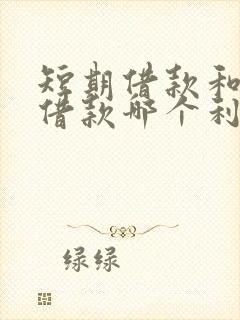 短期借款和
借款哪个利
绿绿